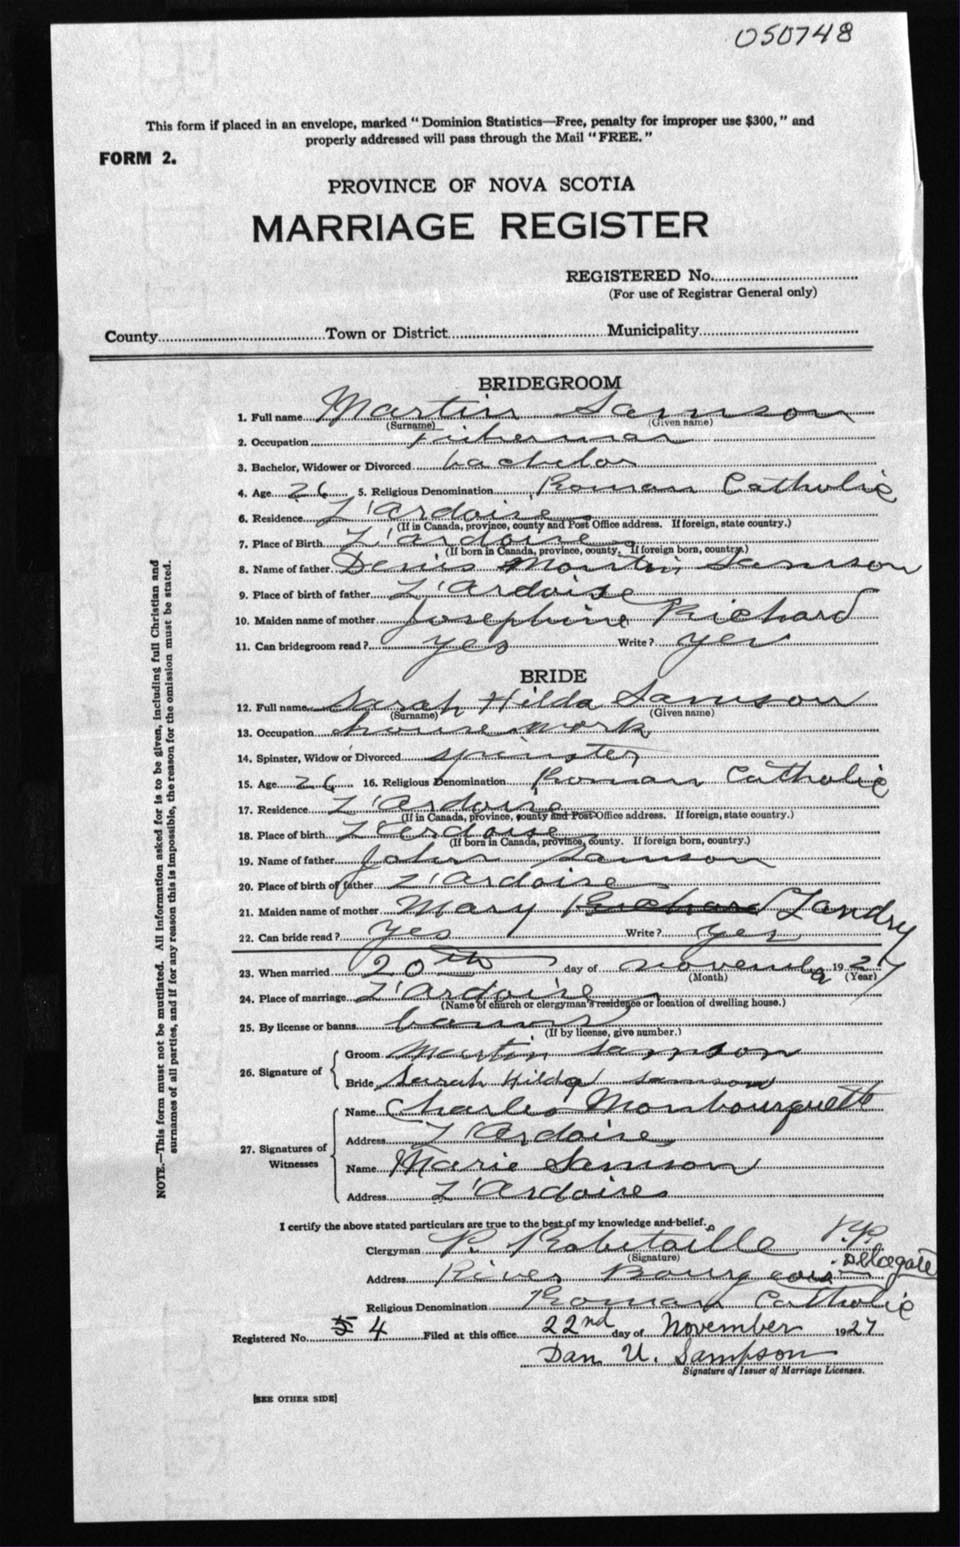 050748
This form if placed in an envelope, marked "Dominion Statistics—Free, penalty for improper use $300," and
properly addressed will pass through the Mail "FREE."
FORM 2.
PROVINCE OF NOVA SCOTIA
MARRIAGE REGISTER
REGISTERED No.
(For use of Registrar General only)
County Town or District Municipality
BRIDEGROOM
1. Full name Martin Samson
(Surname) (Given name)
2. Occupation Fisherman
3. Bachelor, Widower or Divorced bachelor
4. Age 26 5. Religious Denomination Roman Catholic
6. Residence L'Ardoise
(If in Canada, province, county and Post Office address. If foreign, state country.)
7. Place of Birth L'Ardoise
(If born in Canada, province, county. If foreign born, country.)
8. Name of father Denis Martin Samson
9. Place of birth of father L'Ardoise
10. Maiden name of mother Josephine Richard
11. Can bridegroom read? yes Write? yes
BRIDE
12. Full name Sarah Hilda Samson
(Surname) (Given name)
13. Occupation house work
14. Spinster, Widow or Divorced spinster
15. Age 26 16. Religious Denomination Roman Catholic
17. Residence L'Ardoise
(If in Canada, province, county and Post Office address. If foreign, state country.)
18. Place of birth L'Ardoise
(If born in Canada, province, county. If foreign born, country.)
19. Name of father John Samson
20. Place of birth of father L'Ardoise
21. Maiden name of mother Mary Richard Landry
22. Can bride read? yes Write? yes
23. When married 20th day of november 1927
(Month) (Year)
24. Place of marriage L'Ardoise
(Name of church or clergyman's residence or location of dwelling house.)
25. By license or banns banns
(If by license, give number.)
26. Signature of
Groom Martin Samson
Bride Sarah Hilda Samson
27. Signatures of Witnesses
Name Charles Mombourquette
Address L'Ardoise
Name Marie Samson
Address L'Ardoise
I certify the above stated particulars are true to the best of my knowledge and belief.
Clergyman P. Robitaille P.P.
(Signature)
Delegate
Address River Bourgeois
Religious Denomination Roman Catholic
Registered No. 5 4 Filed at this office 22nd day of November 1927
Dan U. Sampson
Signature of Issuer of Marriage Licenses.
[SEE OTHER SIDE]
NOTE.—This form must not be mutilated. All information asked for is to be given, including full Christian and
surnames of all parties, and if for any reason this is impossible, the reason for the omission must be stated.